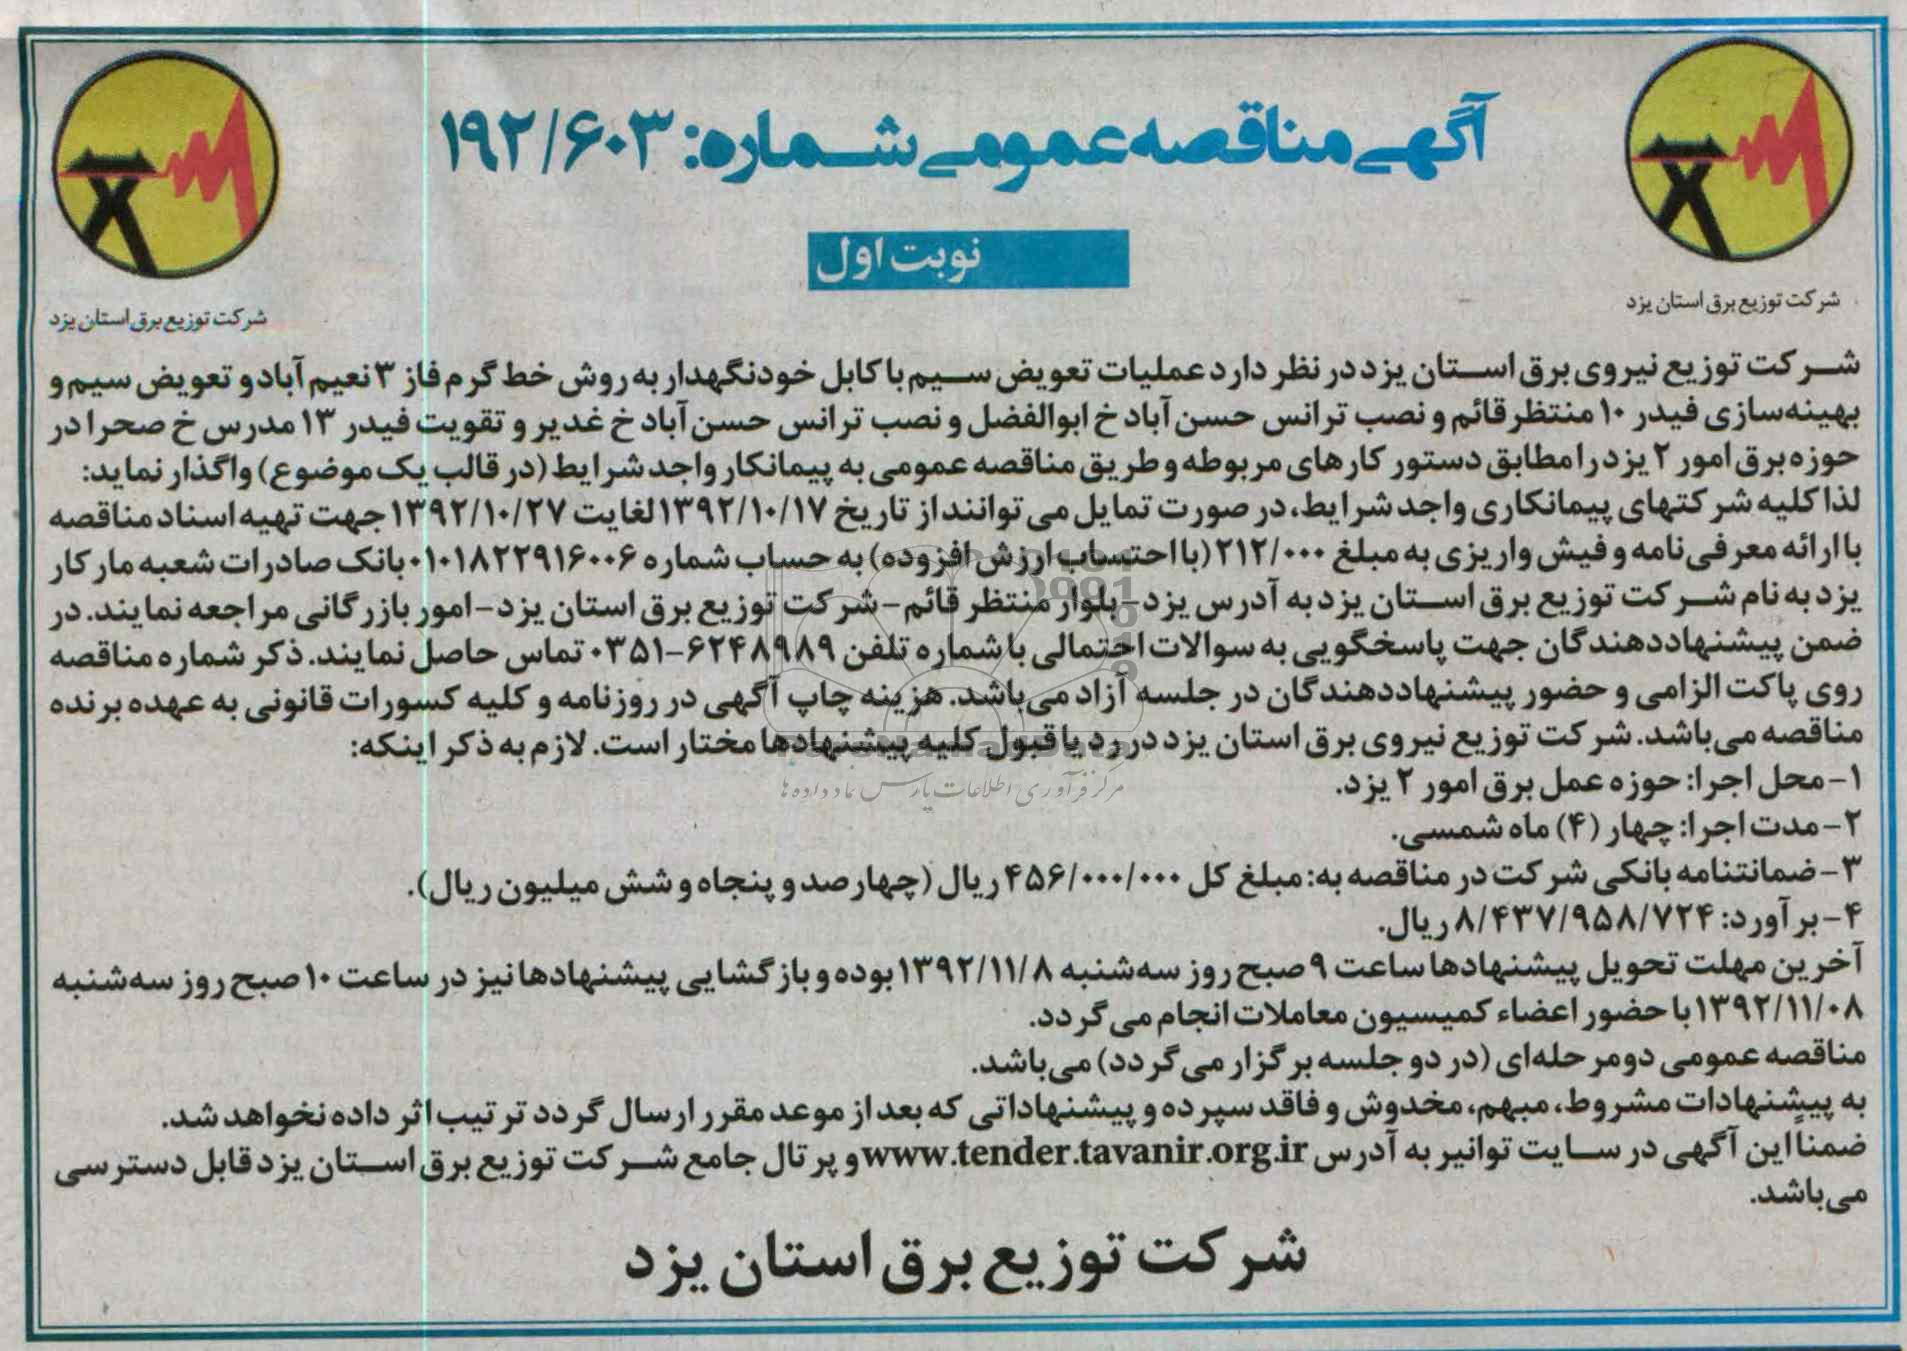 آگهی مناقصه عمومی شماره: ۱۹۲/۶۰۳
نوبت اول
شرکت توزیع برق استان یزد
شرکت توزیع برق استان یزد
شرکت توزیع نیروی برق استان یزد در نظر دارد عملیات تعویض سیم با کابل خودنگهدار به روش خط گرم فاز ۳ نعیم آباد و تعویض سیم و
بهینه‌سازی فیدر ۱۰ منتظر قائم و نصب ترانس حسن آباد خ ابوالفضل و نصب ترانس حسن آباد خ غدیر و تقویت فیدر ۱۳ مدرس خ صحرا در
حوزه برق امور ۲ یزد را مطابق دستور کارهای مربوطه و طریق مناقصه عمومی به پیمانکار واجد شرایط (در قالب یک موضوع) واگذار نماید:
لذا کلیه شرکتهای پیمانکاری واجد شرایط، در صورت تمایل می توانند از تاریخ ۱۳۹۲/۱۰/۱۷ لغایت ۱۳۹۲/۱۰/۲۷ جهت تهیه اسناد مناقصه
با ارائه معرفی نامه و فیش واریزی به مبلغ ۲۱۲/۰۰۰ (با احتساب ارزش افزوده) به حساب شماره ۰۱۰۱۸۲۲۹۱۶۰۰۶ بانک صادرات شعبه مارکار
یزد به نام شرکت توزیع برق استان یزد به آدرس یزد- بلوار منتظر قائم - شرکت توزیع برق استان یزد- امور بازرگانی مراجعه نمایند. در
ضمن پیشنهاددهندگان جهت پاسخگویی به سوالات احتمالی با شماره تلفن ۶۲۴۸۹۸۹-۰۳۵۱ تماس حاصل نمایند. ذکر شماره مناقصه
روی پاکت الزامی و حضور پیشنهاددهندگان در جلسه آزاد می‌باشد. هزینه چاپ آگهی در روزنامه و کلیه کسورات قانونی به عهده برنده
مناقصه می‌باشد. شرکت توزیع نیروی برق استان یزد در رد یا قبول کلیه پیشنهادها مختار است. لازم به ذکر اینکه:
۱- محل اجرا: حوزه عمل برق امور ۲ یزد.
مرکز فرآوری اطلاعات پارس نماد داده ها
۲- مدت اجرا: چهار (۴) ماه شمسی.
۳- ضمانتنامه بانکی شرکت در مناقصه به: مبلغ کل ۴۵۶/۰۰۰/۰۰۰ ریال (چهارصد و پنجاه و شش میلیون ریال).
۴- برآورد: ۸/۴۳۷/۹۵۸/۷۲۴ ریال.
آخرین مهلت تحویل پیشنهادها ساعت ۹ صبح روز سه‌شنبه ۱۳۹۲/۱۱/۸ بوده و بازگشایی پیشنهادها نیز در ساعت ۱۰ صبح روز سه‌شنبه
۱۳۹۲/۱۱/۰۸ با حضور اعضاء کمیسیون معاملات انجام می گردد.
مناقصه عمومی دومرحله‌ای (در دو جلسه برگزار می گردد) می‌باشد.
به پیشنهادات مشروط، مبهم، مخدوش و فاقد سپرده و پیشنهاداتی که بعد از موعد مقرر ارسال گردد ترتیب اثر داده نخواهد شد.
ضمناً این آگهی در سایت توانیر به آدرس www.tender.tavanir.org.ir و پرتال جامع شرکت توزیع برق استان یزد قابل دسترسی
می‌باشد.
شرکت توزیع برق استان یزد